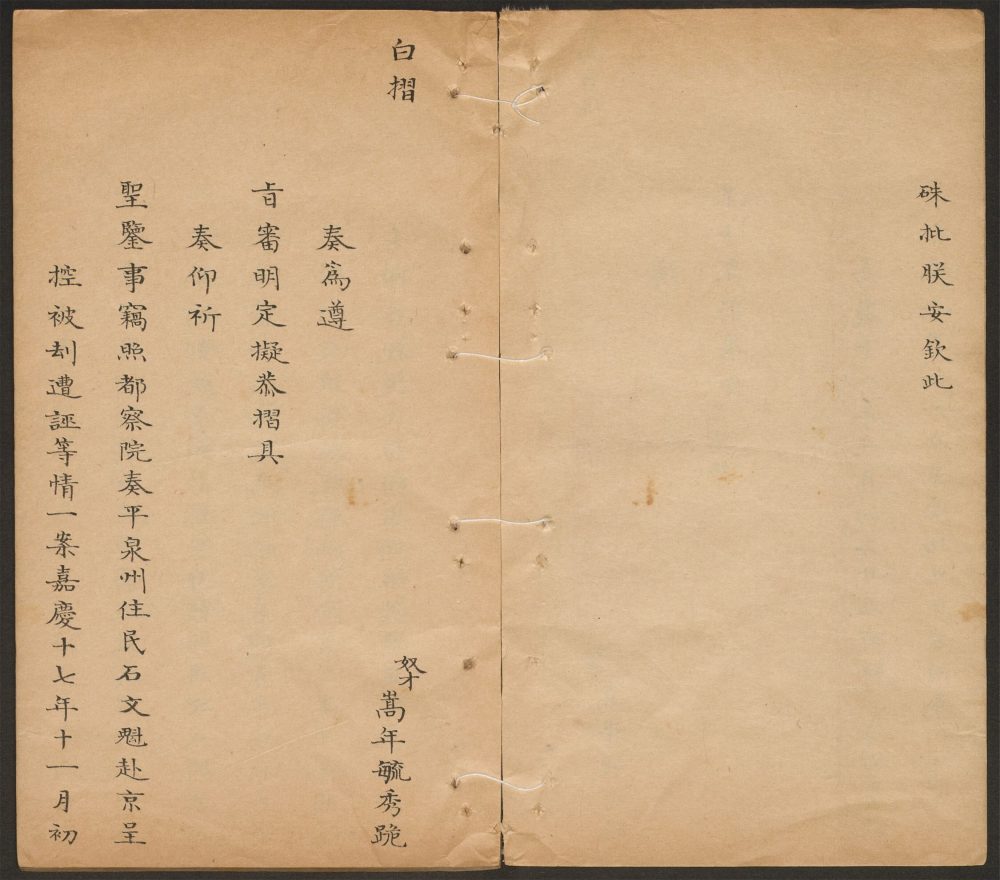 硃批朕安欽此
白摺
奴才嵩年毓秀跪
奏為遵
旨審明定擬恭摺具
奏仰祈
聖鑒事竊照都察院奏平泉州住民石文魁赴京呈
控被刦遭誣等情一案嘉慶十七年十一月初